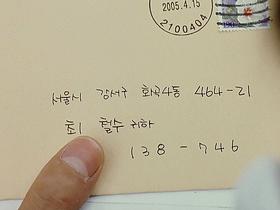 2005.4.15
2100404
190
서울시 강서구 화곡4동 464-21
최 철수 귀하
138-746